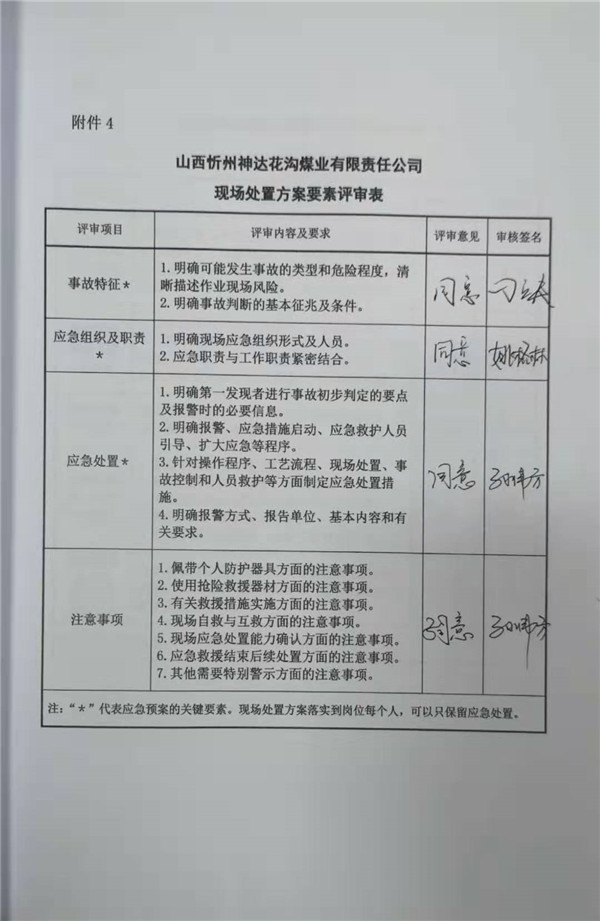 附件 4
山西忻州神达花沟煤业有限责任公司
现场处置方案要素评审表
评审项目 评审内容及要求 评审意见 审核签名
事故特征* 同意
1. 明确可能发生事故的类型和危险程度，清
晰描述作业现场风险。
2. 明确事故判断的基本征兆及条件。
应急组织及职责
* 同意
1. 明确现场应急组织形式及人员。
2. 应急职责与工作职责紧密结合。
应急处置* 同意
1. 明确第一发现者进行事故初步判定的要点
及报警时的必要信息。
2. 明确报警、应急措施启动、应急救护人员
引导、扩大应急等程序。
3. 针对操作程序、工艺流程、现场处置、事
故控制和人员救护等方面制定应急处置措
施。
4. 明确报警方式、报告单位、基本内容和有
关要求。
注意事项 同意
1. 佩带个人防护器具方面的注意事项。
2. 使用抢险救援器材方面的注意事项。
3. 有关救援措施实施方面的注意事项。
4. 现场自救与互救方面的注意事项。
5. 现场应急处置能力确认方面的注意事项。
6. 应急救援结束后续处置方面的注意事项。
7. 其他需要特别警示方面的注意事项。
注：“*”代表应急预案的关键要素。现场处置方案落实到岗位每个人，可以只保留应急处置。